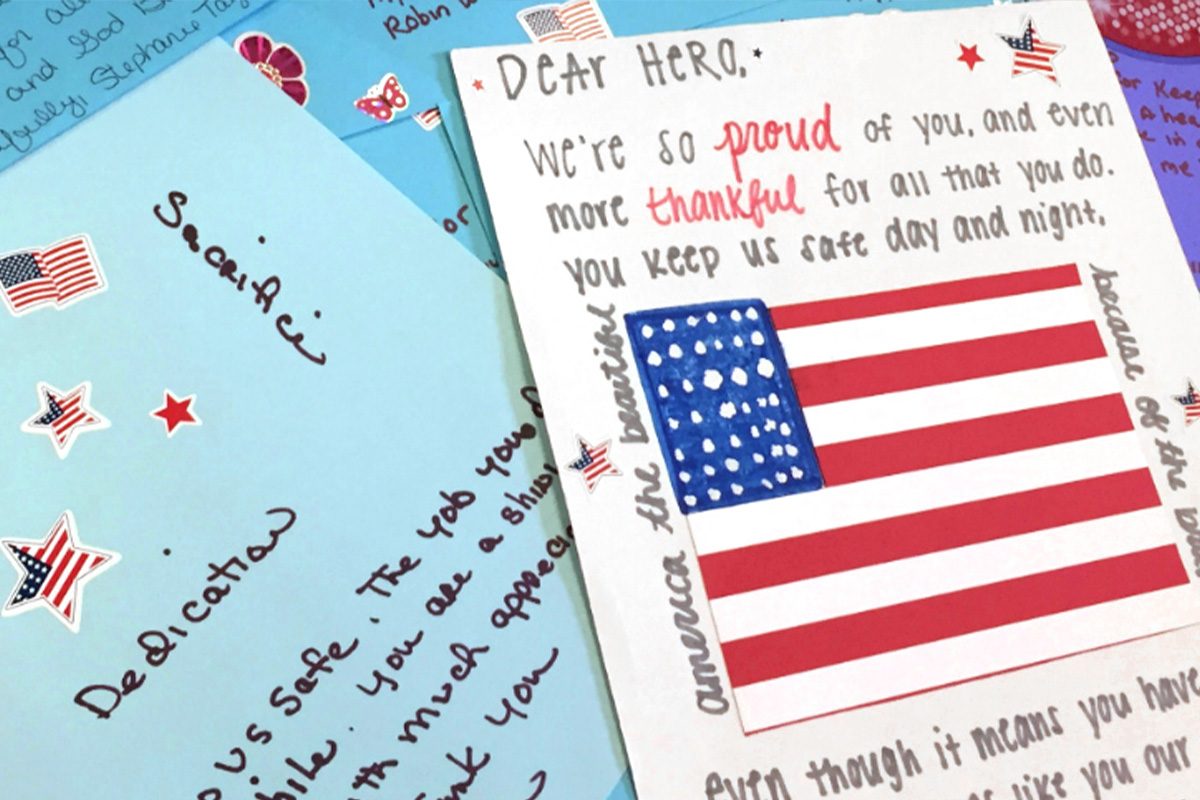 and God
Stephanie
Robin W
Sacrifice
Dedication
us safe. The job you d
You are a
th much apprec
you
DEAR HERO,
We're so proud of you, and even
more thankful for all that you do.
you keep us safe day and night,
america the beautiful
because of the
even though it means you have
like you our
for Keep
me